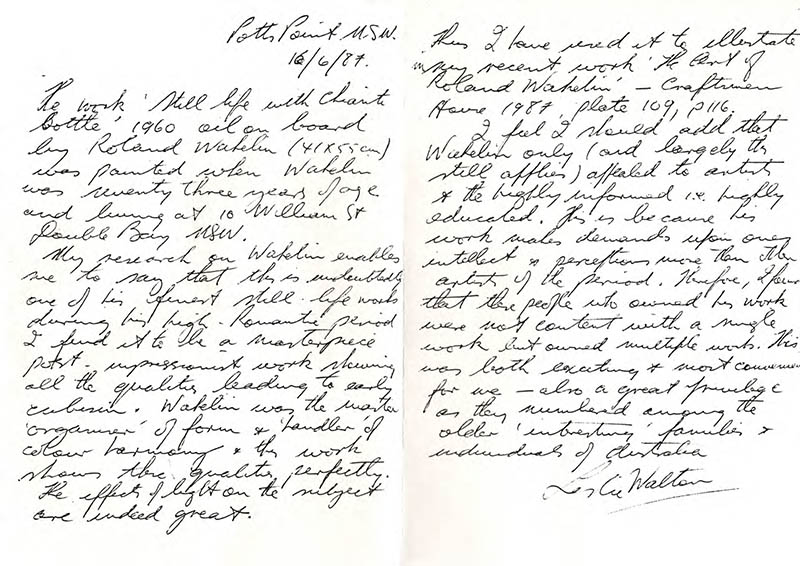 Potts Point NSW.
16/6/87.
The work 'Still life with Chianti
bottle' 1960 oil on board
by Roland Wakelin (41x55cm)
was painted when Wakelin
was seventy three years of age
and living at 10 William St
Double Bay NSW.
My research on Wakelin enables
me to say that this is undoubtedly
one of his finest still-life works
during his high-Romantic period
I find it to be a masterpiece
post-impressionist work showing
all the qualities leading to early
cubism. Wakelin was the master
'organiser' of form & 'handler' of
colour harmony & this work
shows these qualities perfectly.
The effects of light on the subject
are indeed great.
Thus I have used it to illustrate
in my recent work 'The Art of
Roland Wakelin' – Craftsman
House 1987, plate 109, p116.
I feel I should add that
Wakelin only (and largely this
still applies) appealed to artists
& the highly informed i.e. highly
educated. This is because his
work makes demands upon ones
intellect & perceptions more than other
artists of the period. Therefore, I found
that those people who owned his work
were not content with a single
work but owned multiple works. This
was both exciting & most convenient
for me – also a great privilege
as they numbered among the
older 'interesting' families &
individuals of Australia
Leslie Walton